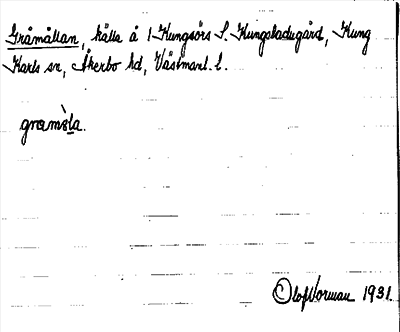 Gråmållan, källa å 1 Kungsörs S. Kungsladugård, Kung
Karls sn, Åkerbo hd, Västmanl. l.
gramòla.
Olof Norman 1931.